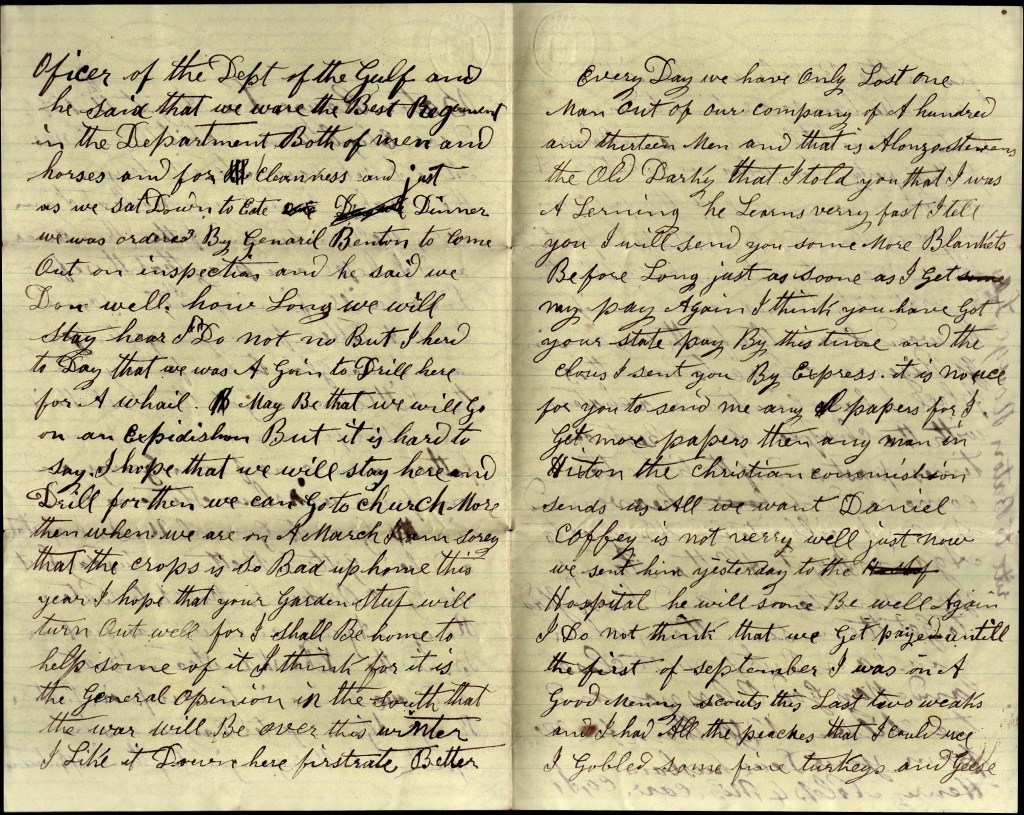 Oficer of the Dept of the Gulf and
he said that we ware the Best Regement
in the Department Both of men and
horses and for Cleanness and just
as we sat Down to Eate Dinner
we was ordered By Genaril Benton to Come
Out on inspection and he said we
Don well. how Long we will
stay hear I Do not no But I herd
to Day that we was A Goin to Drill here
for A whail. May Be that we will Go
on an Expidishon But it is hard to
say. I hope that we will stay here and
Drill for then we can Go to church More
then when we are on A March I am sorey
that the crops is so Bad up home this
year I hope that your Garden stuf will
turn Out well for I shall Be home to
help some of it I think for it is
the General opinion in the south that
the war will Be over this winter
I Like it Down here firstrate Better
Every Day we have Only Lost one
Man out of our company of A hundred
and thirteen Men and that is Alonzo stevens
the Old Darky that I told you that I was
A Lerning he Learns verry fast I tell
you I will send you some More Blankets
Before Long just as soone as I Get
my pay Again I think you have Got
your state pay By this time and the
clous I sent you By Express. it is no uce
for you to send me any papers for I
Get more papers then any man in
Histon the christian commishion
sends us All we want Daniel
Coffey is not verry well just now
we sent him yesterday to the
Hospital he will soone Be well Again
I Do not think that we Get payed untill
the first of september I was on A
Good Menny scouts this Last two weaks
and I had All the peaches that I could uce
I Gobled some fine turkeys and Geese